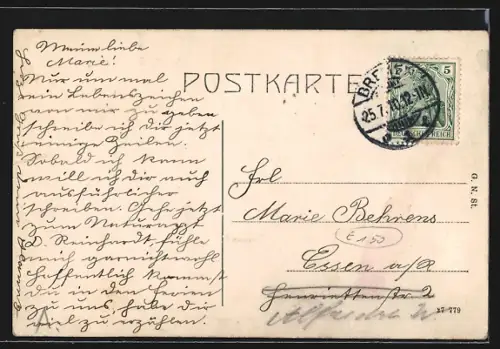 Meine liebe
Marie!
Nur um mal
ein Lebenszeichen
von mir zu geben
schreibe ich dir jetzt
einige Zeilen.
Sobald ich kann
will ich dir auch
ausführlicher
schreiben. Gehe jetzt
zum Naturarzt
D. Reinhardt, fühle
mich garnicht wohl
Hoffentlich kommst
du in den Ferien
zu uns, habe dir
viel zu erzählen.
POSTKARTE
BREMEN
25.7.10.12-1N.
5
DEUTSCHES REICH
Frl.
Marie Behrens
£150
Essen a/R
Henriettenstr. 2
O. N. St.
37 779